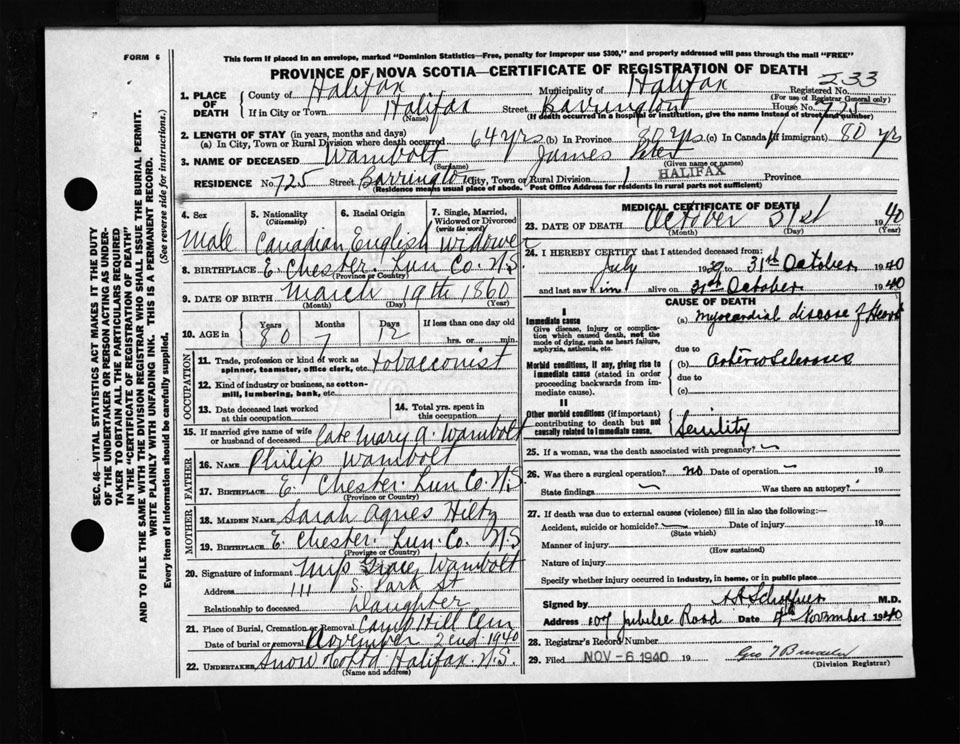 FORM 6
This form if placed in an envelope, marked "Dominion Statistics—Free, penalty for improper use $300," and properly addressed will pass through the mail "FREE"
PROVINCE OF NOVA SCOTIA—CERTIFICATE OF REGISTRATION OF DEATH
233
1. PLACE OF DEATH
County of Halifax Municipality of Halifax Registered No.
(For use of Registrar General only)
If in City or Town Halifax Street Barrington House No. 725
(Name) (If death occurred in a hospital or institution, give the name instead of street and number)
2. LENGTH OF STAY (in years, months and days)
(a) In City, Town or Rural Division where death occurred 64 yrs (b) In Province 80 yrs. (c) In Canada (if immigrant) 80 yrs
3. NAME OF DECEASED Wambolt James Peter
(Surname) (Given name or names)
RESIDENCE No. 725 Street Barrington City, Town or Rural Division 1 HALIFAX Province
(Residence means usual place of abode. Post Office Address for residents in rural parts not sufficient)
4. Sex 5. Nationality (Citizenship) 6. Racial Origin 7. Single, Married, Widowed or Divorced (write the word)
Male Canadian English Widower
8. BIRTHPLACE E. Chester. Lun Co. N.S.
(Province or Country)
9. DATE OF BIRTH March 19th 1860
(Month) (Day) (Year)
10. AGE in Years Months Days If less than one day old
80 7 12 hrs. or min.
OCCUPATION
11. Trade, profession or kind of work as spinner, teamster, office clerk, etc. tobacconist
12. Kind of industry or business, as cotton-mill, lumbering, bank, etc.
13. Date deceased last worked at this occupation 14. Total yrs. spent in this occupation
15. If married give name of wife or husband of deceased Late Mary A. Wambolt
FATHER
16. NAME Philip Wambolt
17. BIRTHPLACE E. Chester. Lun Co. N.S.
(Province or Country)
MOTHER
18. MAIDEN NAME Sarah Agnes Hiltz
19. BIRTHPLACE E. Chester. Lun. Co. N.S
(Province or Country)
20. Signature of informant Miss Grace Wambolt
Address 111 S. Park St
Relationship to deceased Daughter
21. Place of Burial, Cremation or Removal Camp Hill Cem
Date of burial or removal November 2nd 1940
22. UNDERTAKER Snow Co Ltd Halifax N.S.
(Name and address)
MEDICAL CERTIFICATE OF DEATH
23. DATE OF DEATH October 31st 1940
(Month) (Day) (Year)
24. I HEREBY CERTIFY that I attended deceased from:
July 1939 to 31st October 1940
and last saw him alive on 31st October 1940
CAUSE OF DEATH
I
Immediate cause (a) Myocardial disease of Heart
Give disease, injury or complication which caused death, not the mode of dying, such as heart failure, asphyxia, asthenia, etc.
due to
Morbid conditions, if any, giving rise to immediate cause (stated in order proceeding backwards from immediate cause). (b) arterio sclerosis
due to
(c)
II
Other morbid conditions (if important) contributing to death but not causally related to immediate cause. Senility
25. If a woman, was the death associated with pregnancy?
26. Was there a surgical operation? no Date of operation 19
State findings Was there an autopsy?
27. If death was due to external causes (violence) fill in also the following:—
Accident, suicide or homicide? Date of injury 19
(State which)
Manner of injury
(How sustained)
Nature of injury
Specify whether injury occurred in industry, in home, or in public place
Signed by M.D.
Address 107 Jubilee Road Date 4th November 1940
28. Registrar's Record Number
29. Filed NOV - 6 1940 19
(Division Registrar)
SEC. 46—VITAL STATISTICS ACT MAKES IT THE DUTY
OF THE UNDERTAKER OR PERSON ACTING AS UNDER-
TAKER TO OBTAIN ALL THE PARTICULARS REQUIRED
IN THE "CERTIFICATE OF REGISTRATION OF DEATH"
AND TO FILE THE SAME WITH THE DIVISION REGISTRAR WHO SHALL ISSUE THE BURIAL PERMIT.
WRITE PLAINLY WITH UNFADING INK. THIS IS A PERMANENT RECORD.
Every item of information should be carefully supplied. (See reverse side for instructions.)